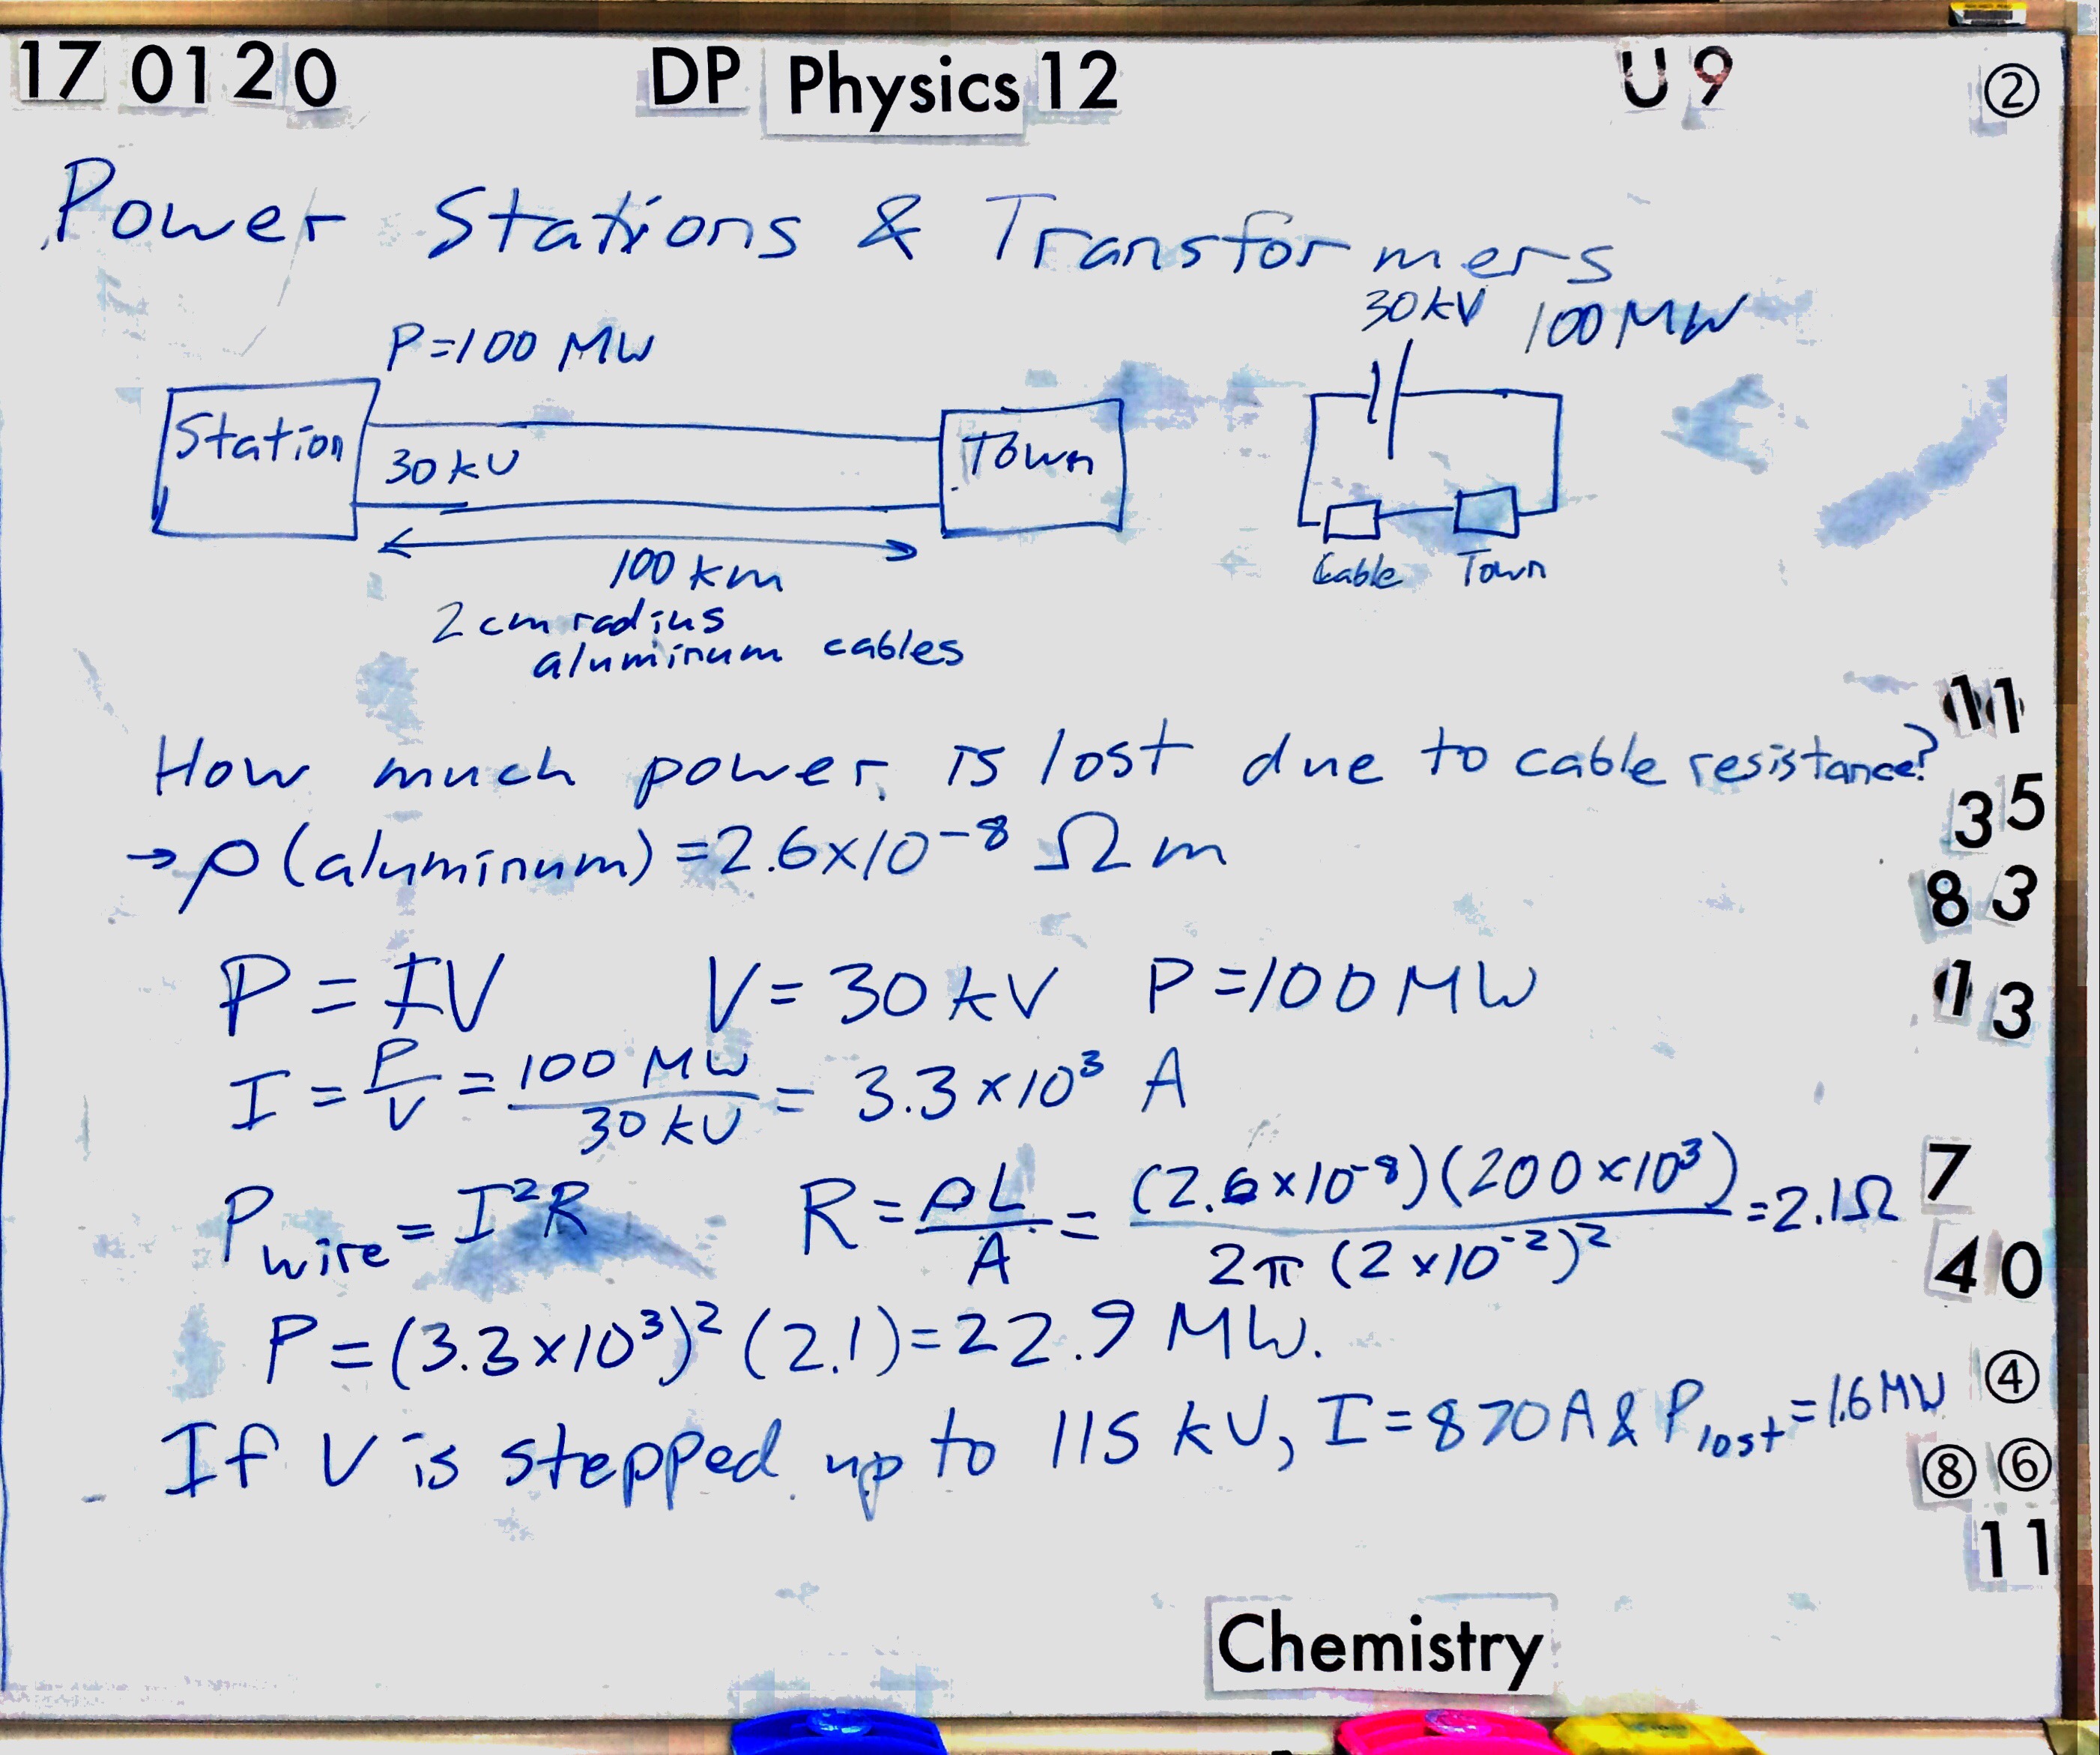 17 01 20 DP Physics 12 U 9 ②
Power Stations & Transformers
P=100 MW
30kV 100MW
Station 30kV Town
100 km
2 cm radius
aluminum cables
Cable Town
How much power is lost due to cable resistance?
→ρ (aluminum) =2.6x10⁻⁸ Ωm
P = IV V = 30 kV P =100 MW
I = P/V = 100 MW/30 kV = 3.3 x10³ A
P wire = I²R R = ρL/A = (2.6x10⁻⁸)(200x10³)/2π (2x10⁻²)² =2.1Ω
P =(3.3x10³)² (2.1)=22.9 MW.
If V is stepped up to 115 kV, I=870A & P lost =1.6MW
11
35
83
13
7
40
④
⑧ ⑥
11
Chemistry